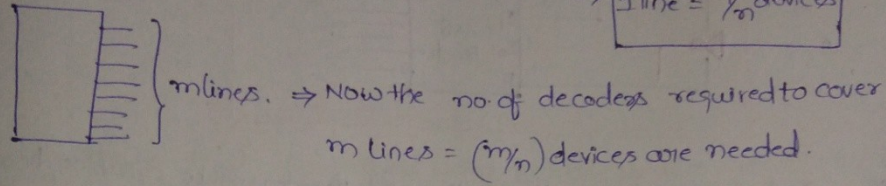 1 line = 1/n devices
m lines. ⇒ Now the no. of decoders required to cover
m lines = (m/n) devices are needed.